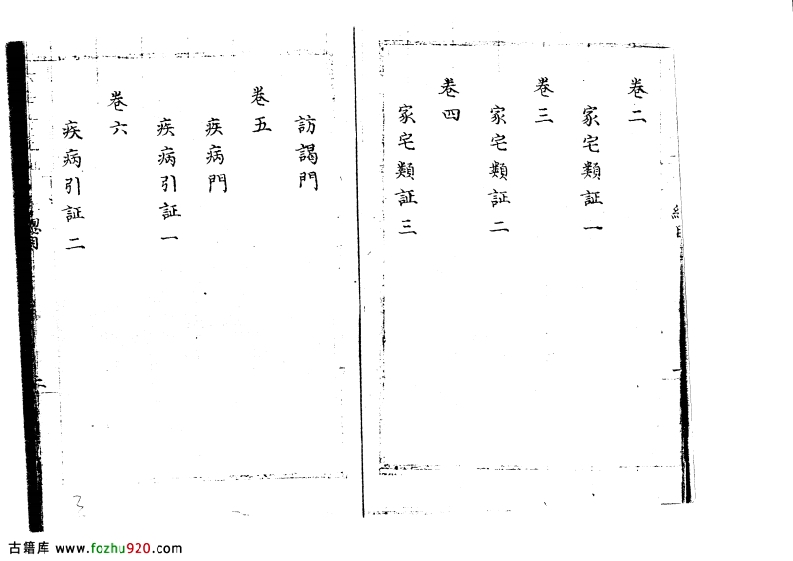 卷二
家宅類証一
卷三
家宅類証二
卷四
家宅類証三
訪謁門
卷五
疾病門
疾病引証一
卷六
疾病引証二
總目
3
古籍库 www.fozhu920.com